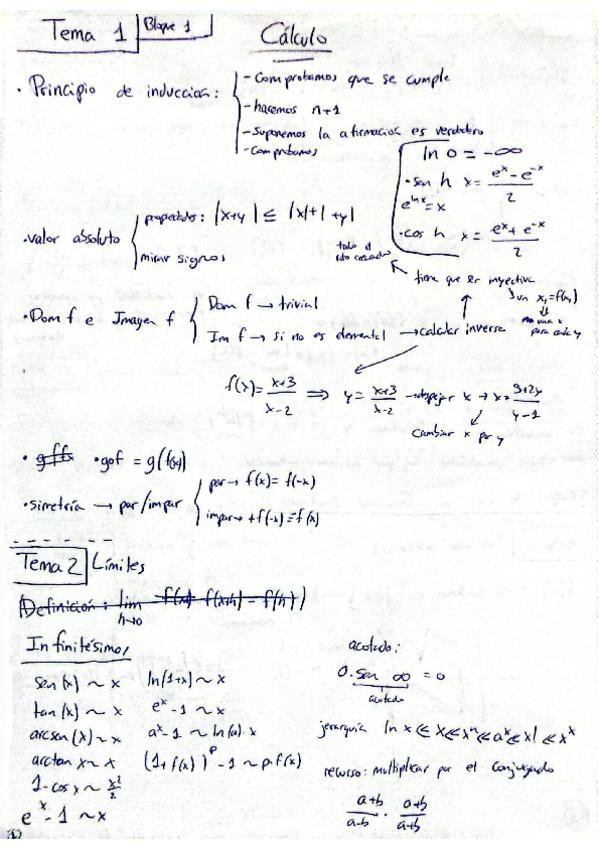 Tema 1 Bloque 1 Cálculo
· Principio de induccion:
- Comprobamos que se cumple
- hacemos n+1
- Suponemos la afirmacion es verdadero
- Comprobamos
ln 0 = -∞
· sen h x = (e^x - e^-x)/2
e^lnx = x
· cos h x = (e^x + e^-x)/2
· valor absoluto
propiedades: |x+y| ≤ |x|+|+y|
mirar signos
todo el
tiene que ser inyectiva
∃ un x₁=f(x₁)
para cada y
· Dom f e Imagen f
Dom f → trivial
Im f → si no es elemental → calcular inversa
f(x) = (x+3)/(x-2) ⇒ y = (x+3)/(x-2) → despejar x → x = (3+2y)/(y-1)
Cambiar x por y
· gof = g(f(x))
· simetría → par/impar
par → f(x) = f(-x)
impar → +f(-x) = f(x)
Tema 2 Límites
Definición: lim f(x) f(x+h) - f(h)
h→0
Infinitésimos
sen(x) ~ x ln(1+x) ~ x
tan(x) ~ x e^x - 1 ~ x
arcsen(x) ~ x a^x - 1 ~ ln(a)·x
arctan x ~ x (1+f(x))^p - 1 ~ p·f(x)
1 - cos x ~ x²/2
e^x - 1 ~ x
acotado:
0·sen ∞ = 0
acotado
jerarquia ln x ≪ x ≪ x^n ≪ a^x ≪ x! ≪ x^x
recurso: multiplicar por el conjugado
(a+b)/(a-b) · (a+b)/(a+b)